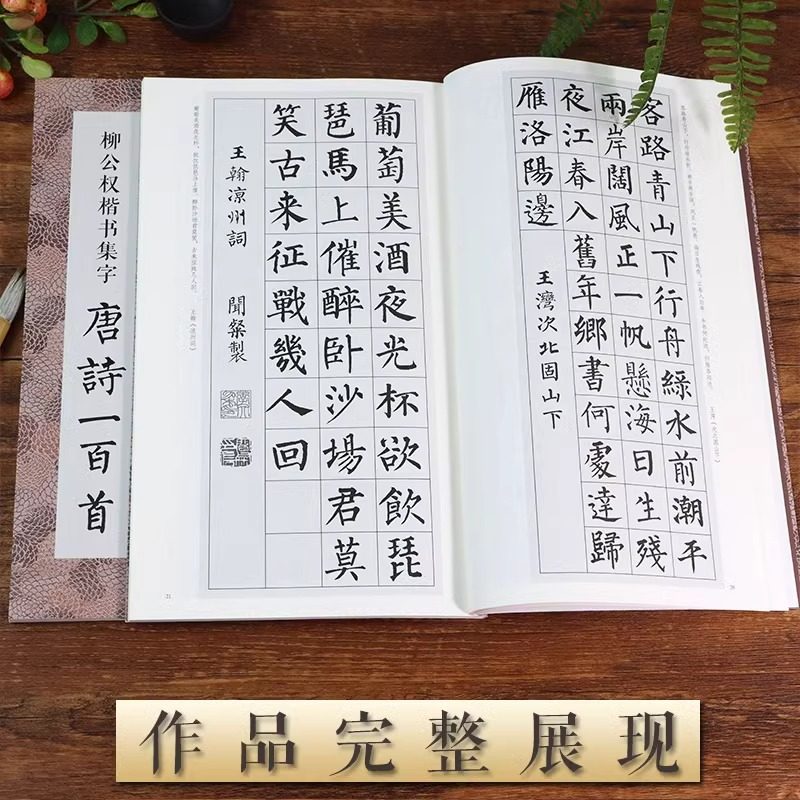 柳公权楷书集字
唐詩一百首
客路青山下行舟綠水前潮平
兩岸闊風正一帆懸海日生殘
夜江春入舊年鄉書何處達歸
雁洛陽邊
王灣次北固山下
葡萄美酒夜光杯欲飲琵
琶馬上催醉卧沙場君莫
笑古来征戰幾人回
王翰凉州詞 聞粲製
作品完整展现